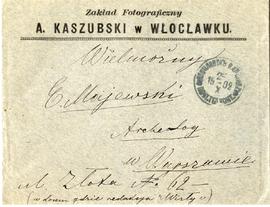 Zakład Fotograficzny
A. KASZUBSKI w WŁOCŁAWKU.
Wielmożny
E. Majewski
Archeolog
w Warszawie
ul. Złota № 62
(w domu gdzie redakcja „Wisły")